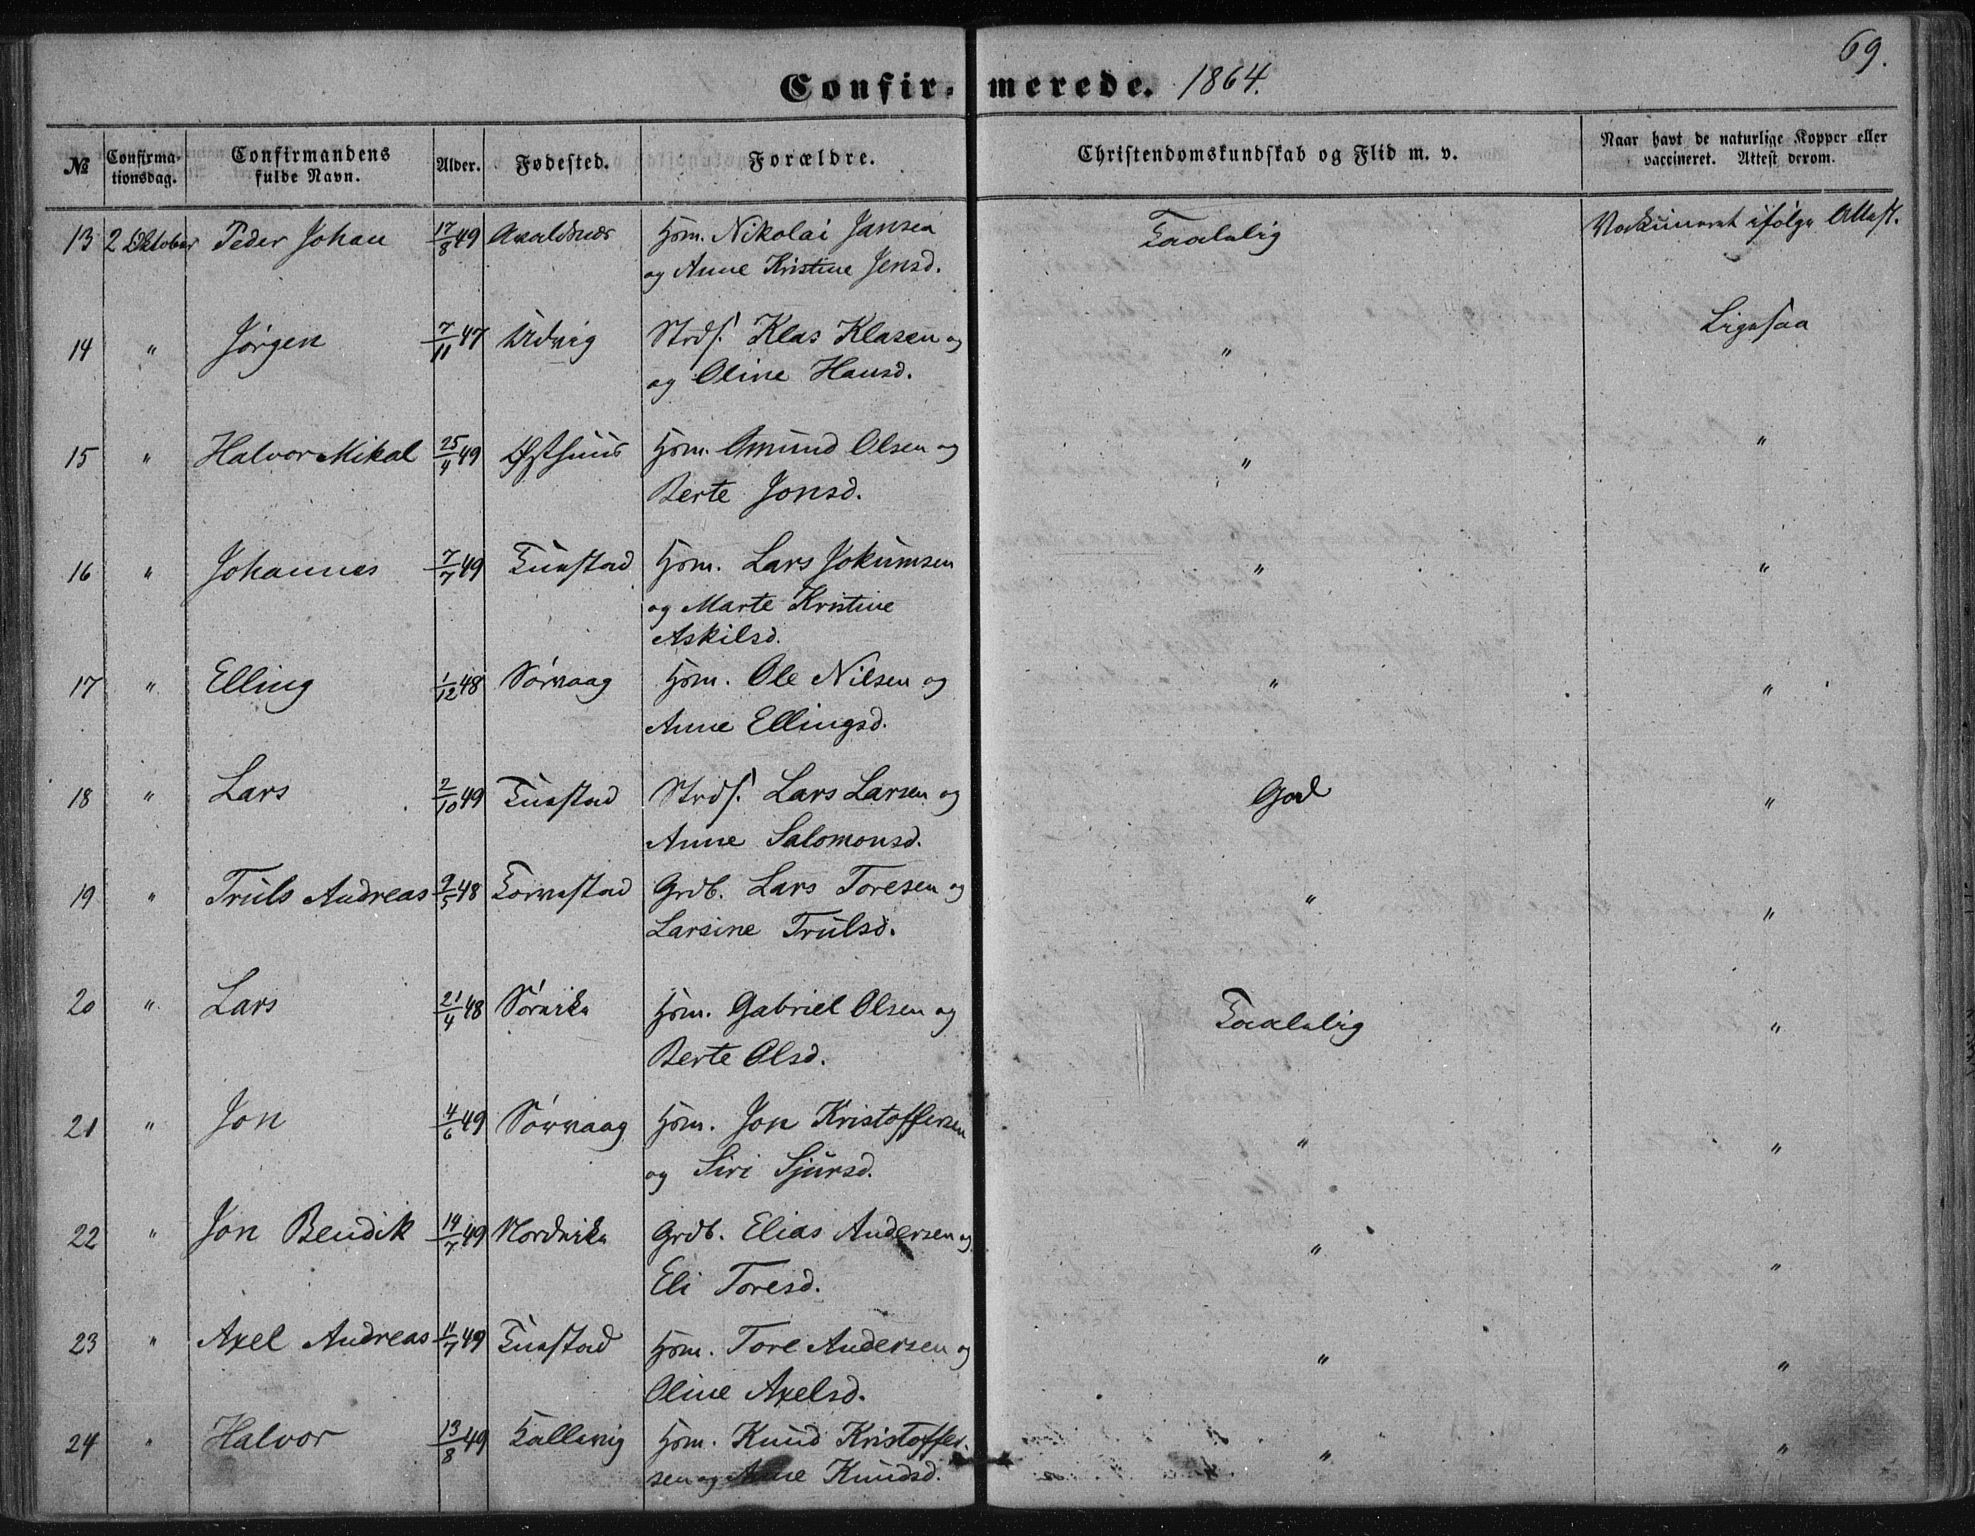 69.
Confirmerede. 1864.
№ Confirmationsdag. Confirmandens fulde Navn. Alder. Fødested. Forældre. Christendomskundskab og Flid m. v. Naar havt de naturlige Kopper eller vaccineret. Attest derom.
13 2 Oktober Peder Johan 17/8 49 Avaldsnes Hsm. Nikolai Jansen Taalelig Vaksineret ifølge Attest.
og Anne Kristine Jensd.
14 " Jørgen 7/11 47 Udvig Strds. Klas Klasen og " Ligesaa
og Oline Hansd.
15 " Halvor Mikal 25/4 49 Østhuus Hsm. Amund Olsen og " "
Berte Jonsd.
16 " Johannes 7/7 49 Tuastad Hsm. Lars Jokumsen " "
og Marte Kristine
Askilsd.
17 " Elling 1/12 48 Sørvaag Hsm. Ole Nilsen og " "
Anne Ellingsd.
18 " Lars 2/10 49 Tuastad Strds. Lars Larsen og God "
Anne Salomonsd.
19 " Truls Andreas 9/5 48 Torvestad Grdb. Lars Toresen og " "
Larsine Trulsd.
20 " Lars 21/4 48 Sørvike Hsm. Gabriel Olsen og Taalelig "
Berte Olsd.
21 " Jon 4/6 49 Sørvaag Hsm. Jon Kristoffersen " "
og Siri Sjursd.
22 " Jon Bendik 14/7 49 Nordvike Grdb. Elias Andersen og " "
Eli Toresd.
23 " Axel Andreas 11/7 49 Tuastad Hsm. Tore Andersen og " "
Oline Axelsd.
24 " Halvor 13/8 49 Kallevig Hsm. Knud Kristoffer- " "
sen og Anne Knudsd.